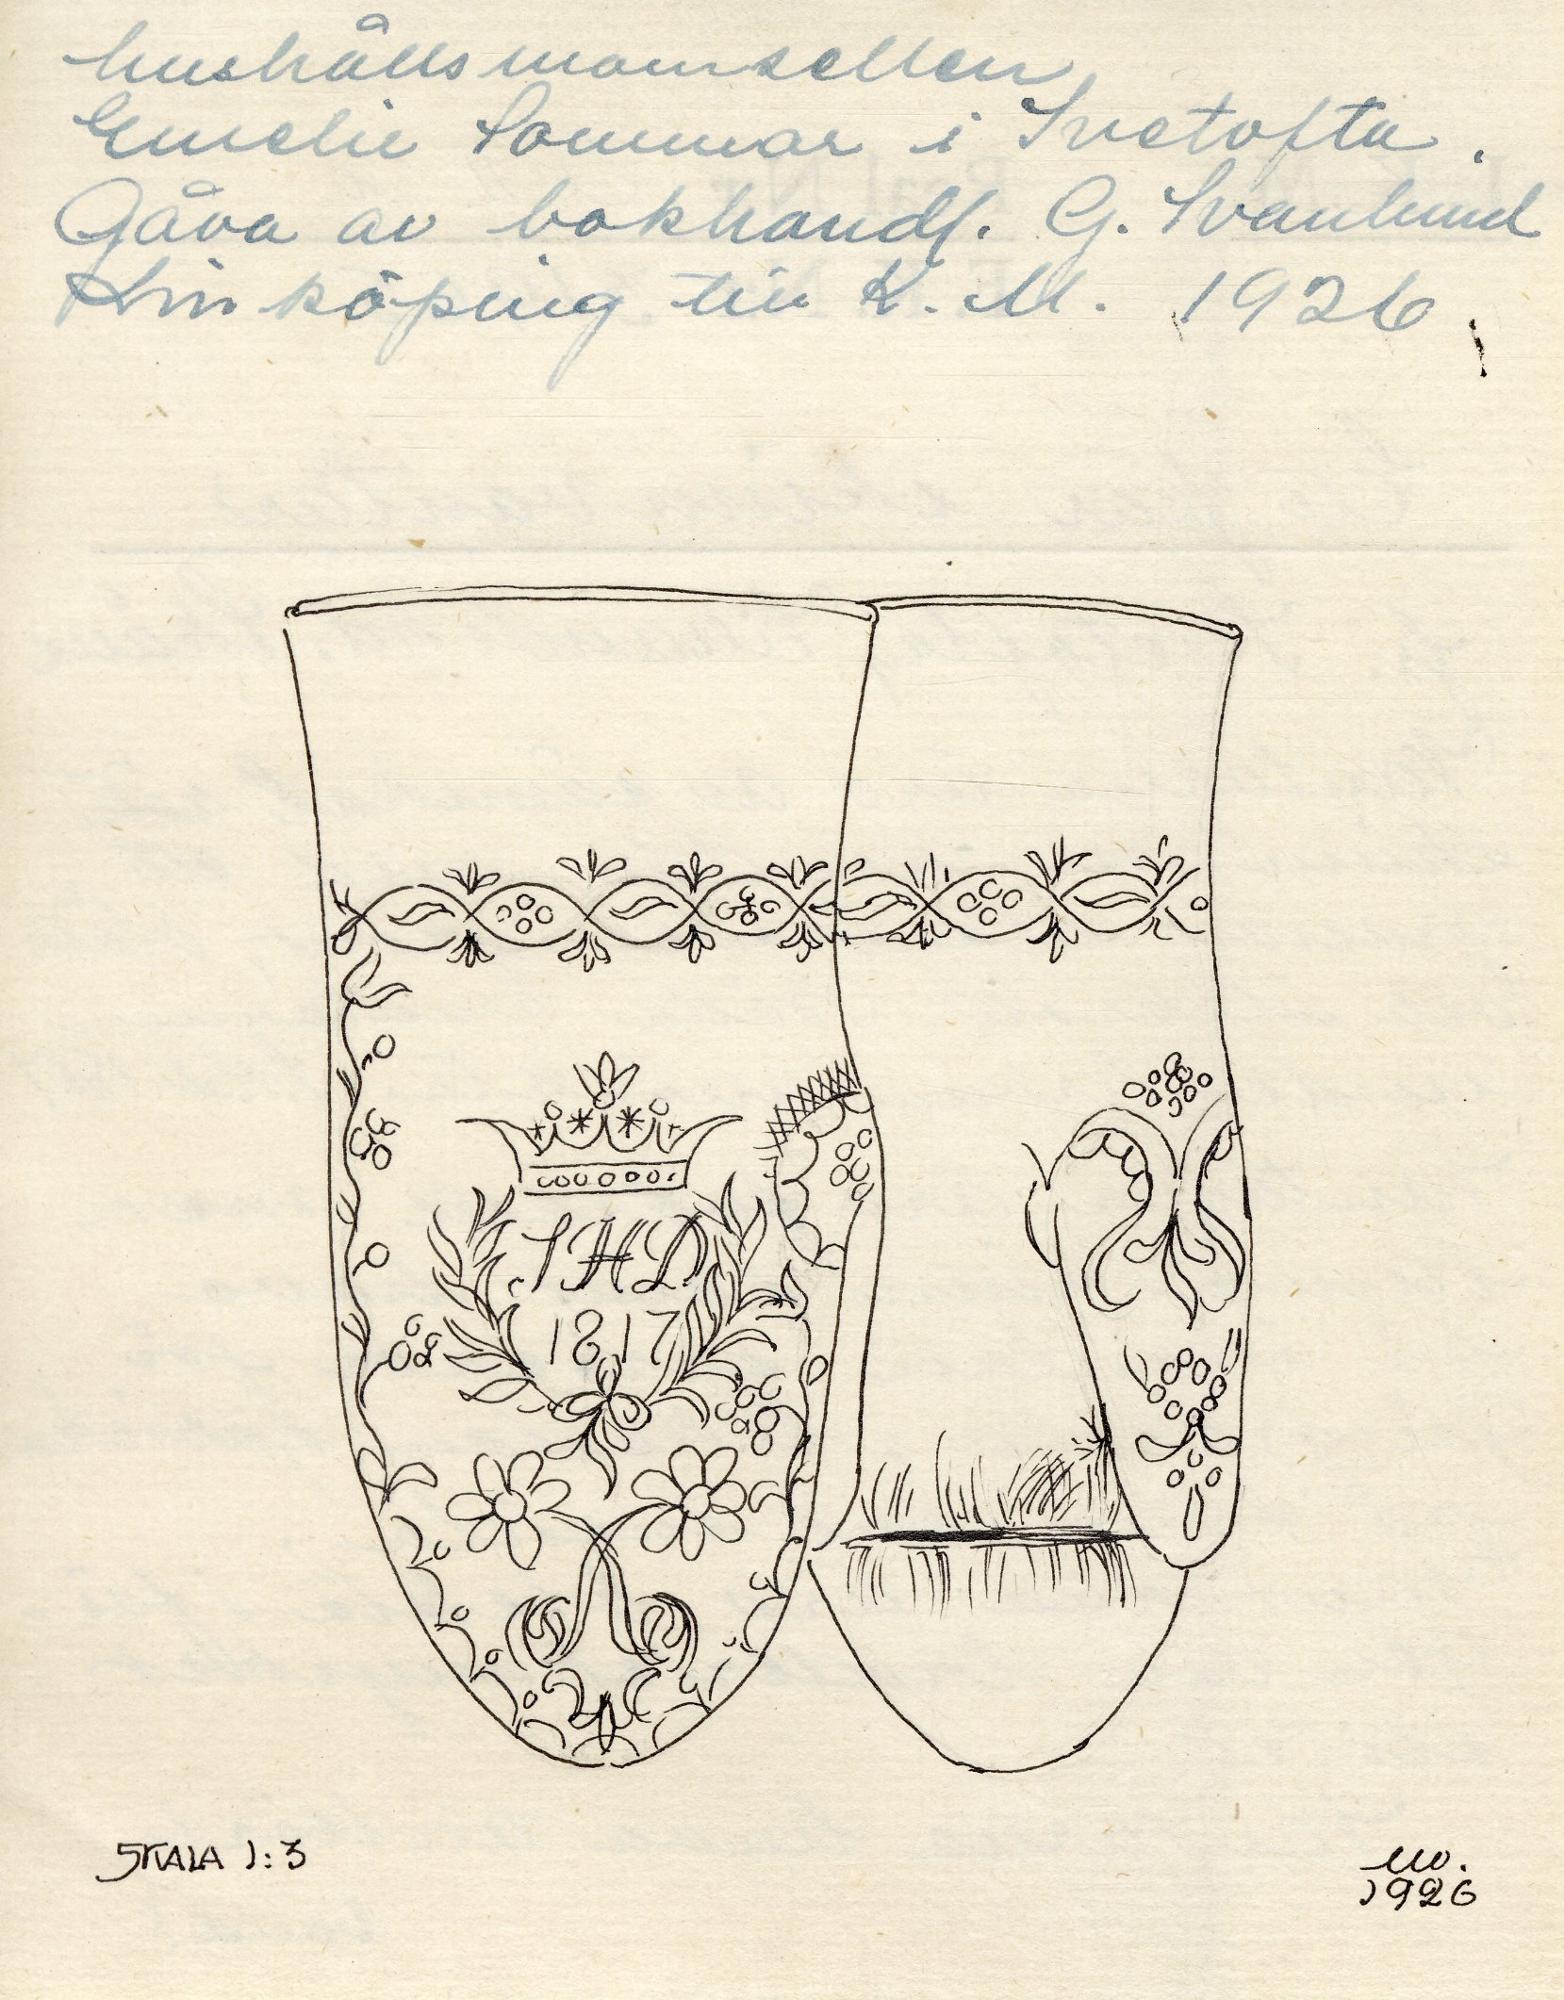 hushållsmamsellen
Emelie Sommar i Tvetofta.
Gåva av bokhandl. G. Svanlund
Linköping till K. M. 1926
IHD
1817
SKALA 1:3
1926